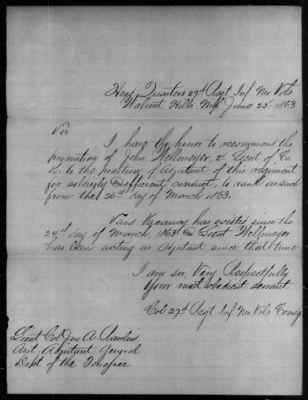 Head Quarters 29th Regt Inf Mo Vols
Walnut Hills Miss June 25th 1863
Sir
I have the honor to recommend the
promotion of John Wellmeyer, 2d Lieut of Co
to the position of Adjutant of this regiment
for soldierly & efficient conduct, to rank as such
from the 26th day of March 1863.
This Vacancy has existed since the
24th day of March, 1863 & Lieut Wellmeyer
has been acting as Adjutant since that time
I am sir, Very Respectfully
Your most obedient servant
Col 29th Regt Inf Mo Vols Comdg
Lieut Col Jno A.
Asst Adjutant General
Dept of the Tennessee